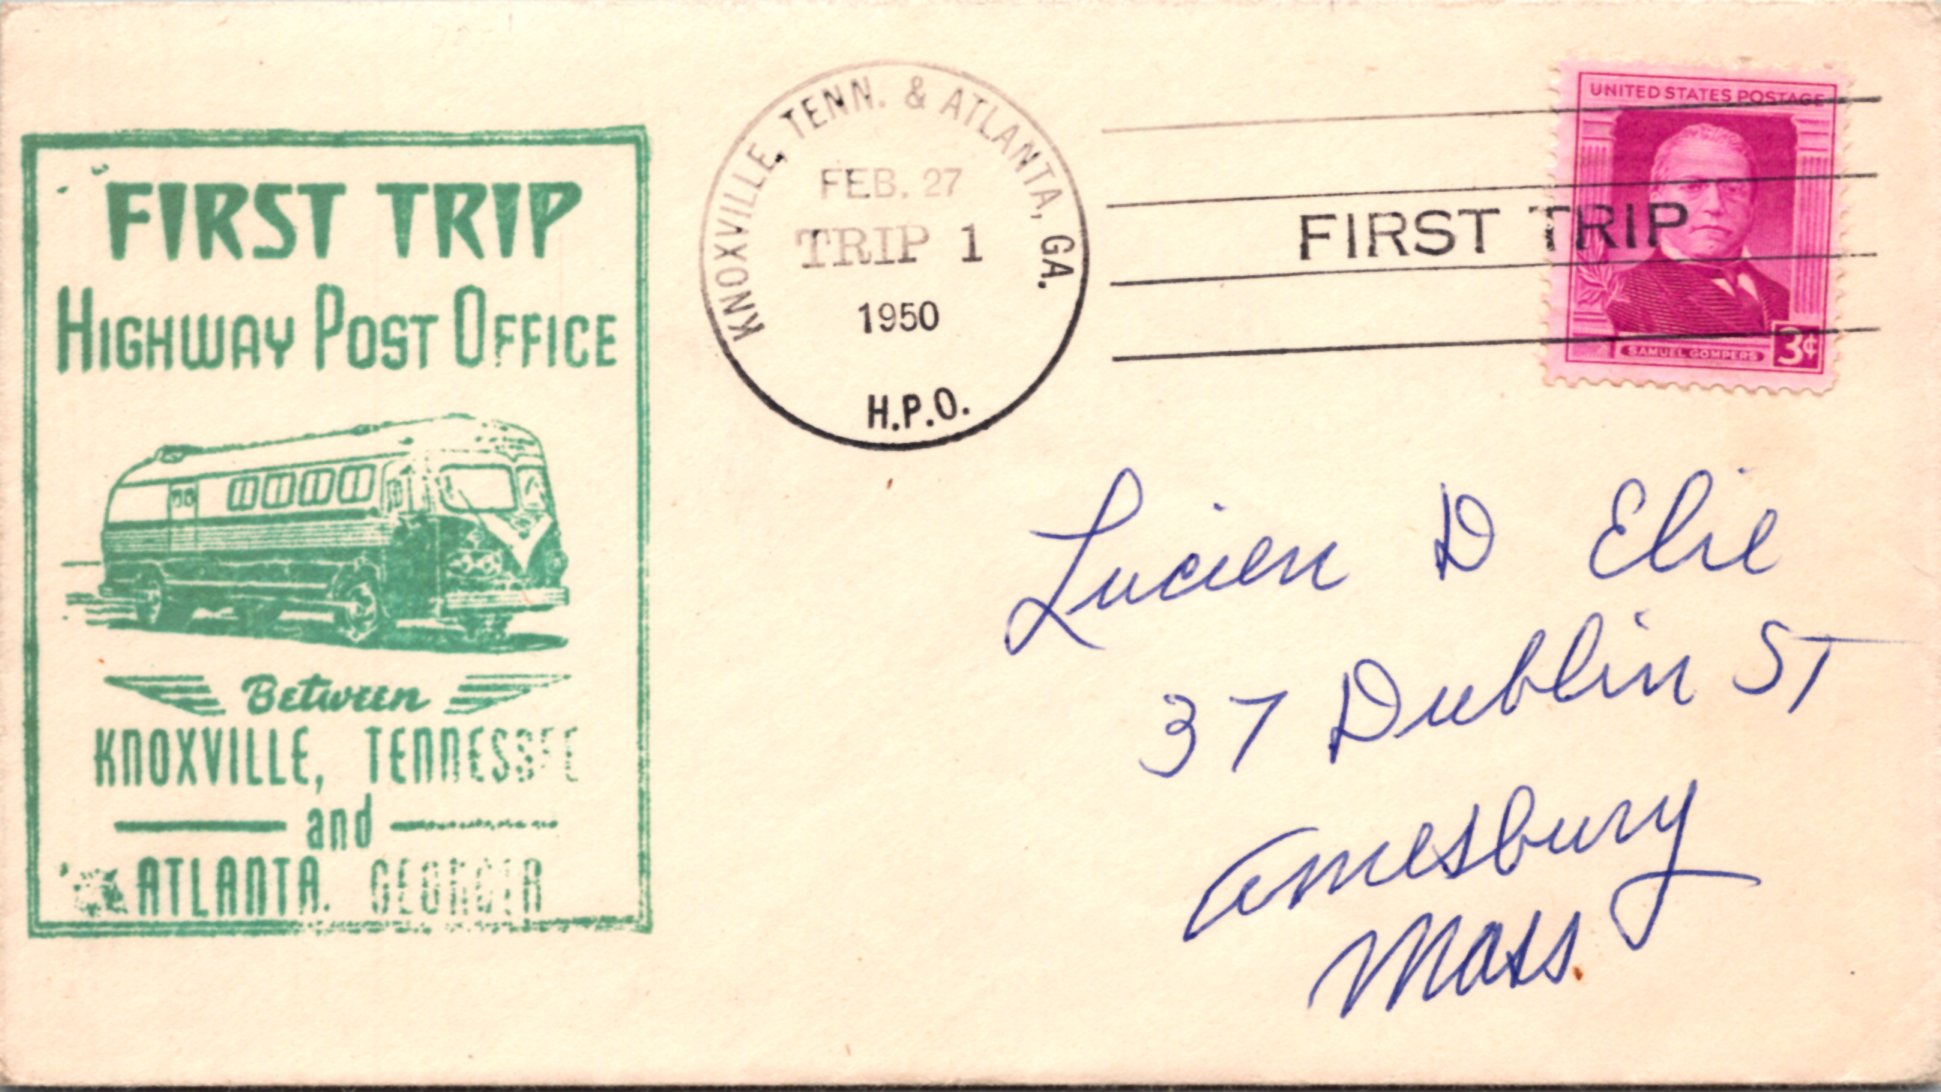 FIRST TRIP
HIGHWAY POST OFFICE
Between
KNOXVILLE, TENNESSEE
and
ATLANTA, GEORGIA
KNOXVILLE, TENN. & ATLANTA, GA.
FEB. 27
TRIP 1
1950
H.P.O.
FIRST TRIP
UNITED STATES POSTAGE
SAMUEL GOMPERS
3¢
Lucien D Elie
37 Dublin ST
Amesbury
Mass.